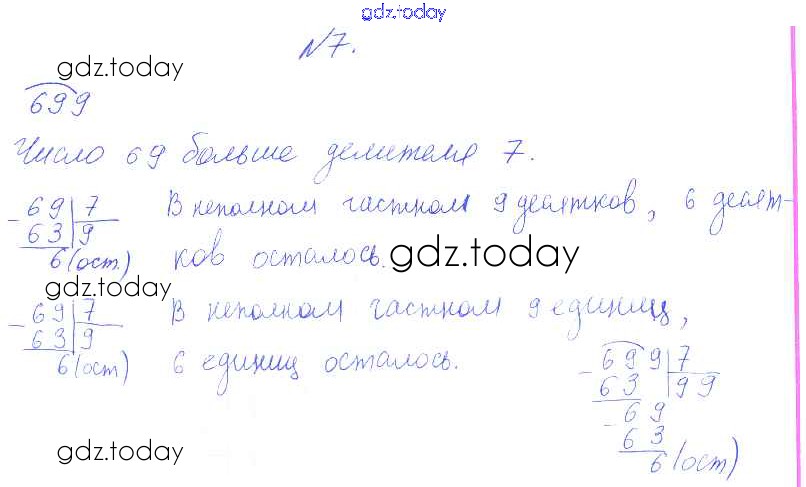 gdz.today
№7.
gdz.today
699
Число 69 больше делителя 7.
- 69 | 7 В неполном частном 9 десятков, 6 десят-
63 | 9
6 (ост) ков осталось. gdz.today
gdz.today
- 69 | 7 В неполном частном 9 единиц,
63 | 9
6 (ост) 6 единиц осталось.
- 699 | 7
63 | 99
- 69
63
gdz.today
6 (ост)